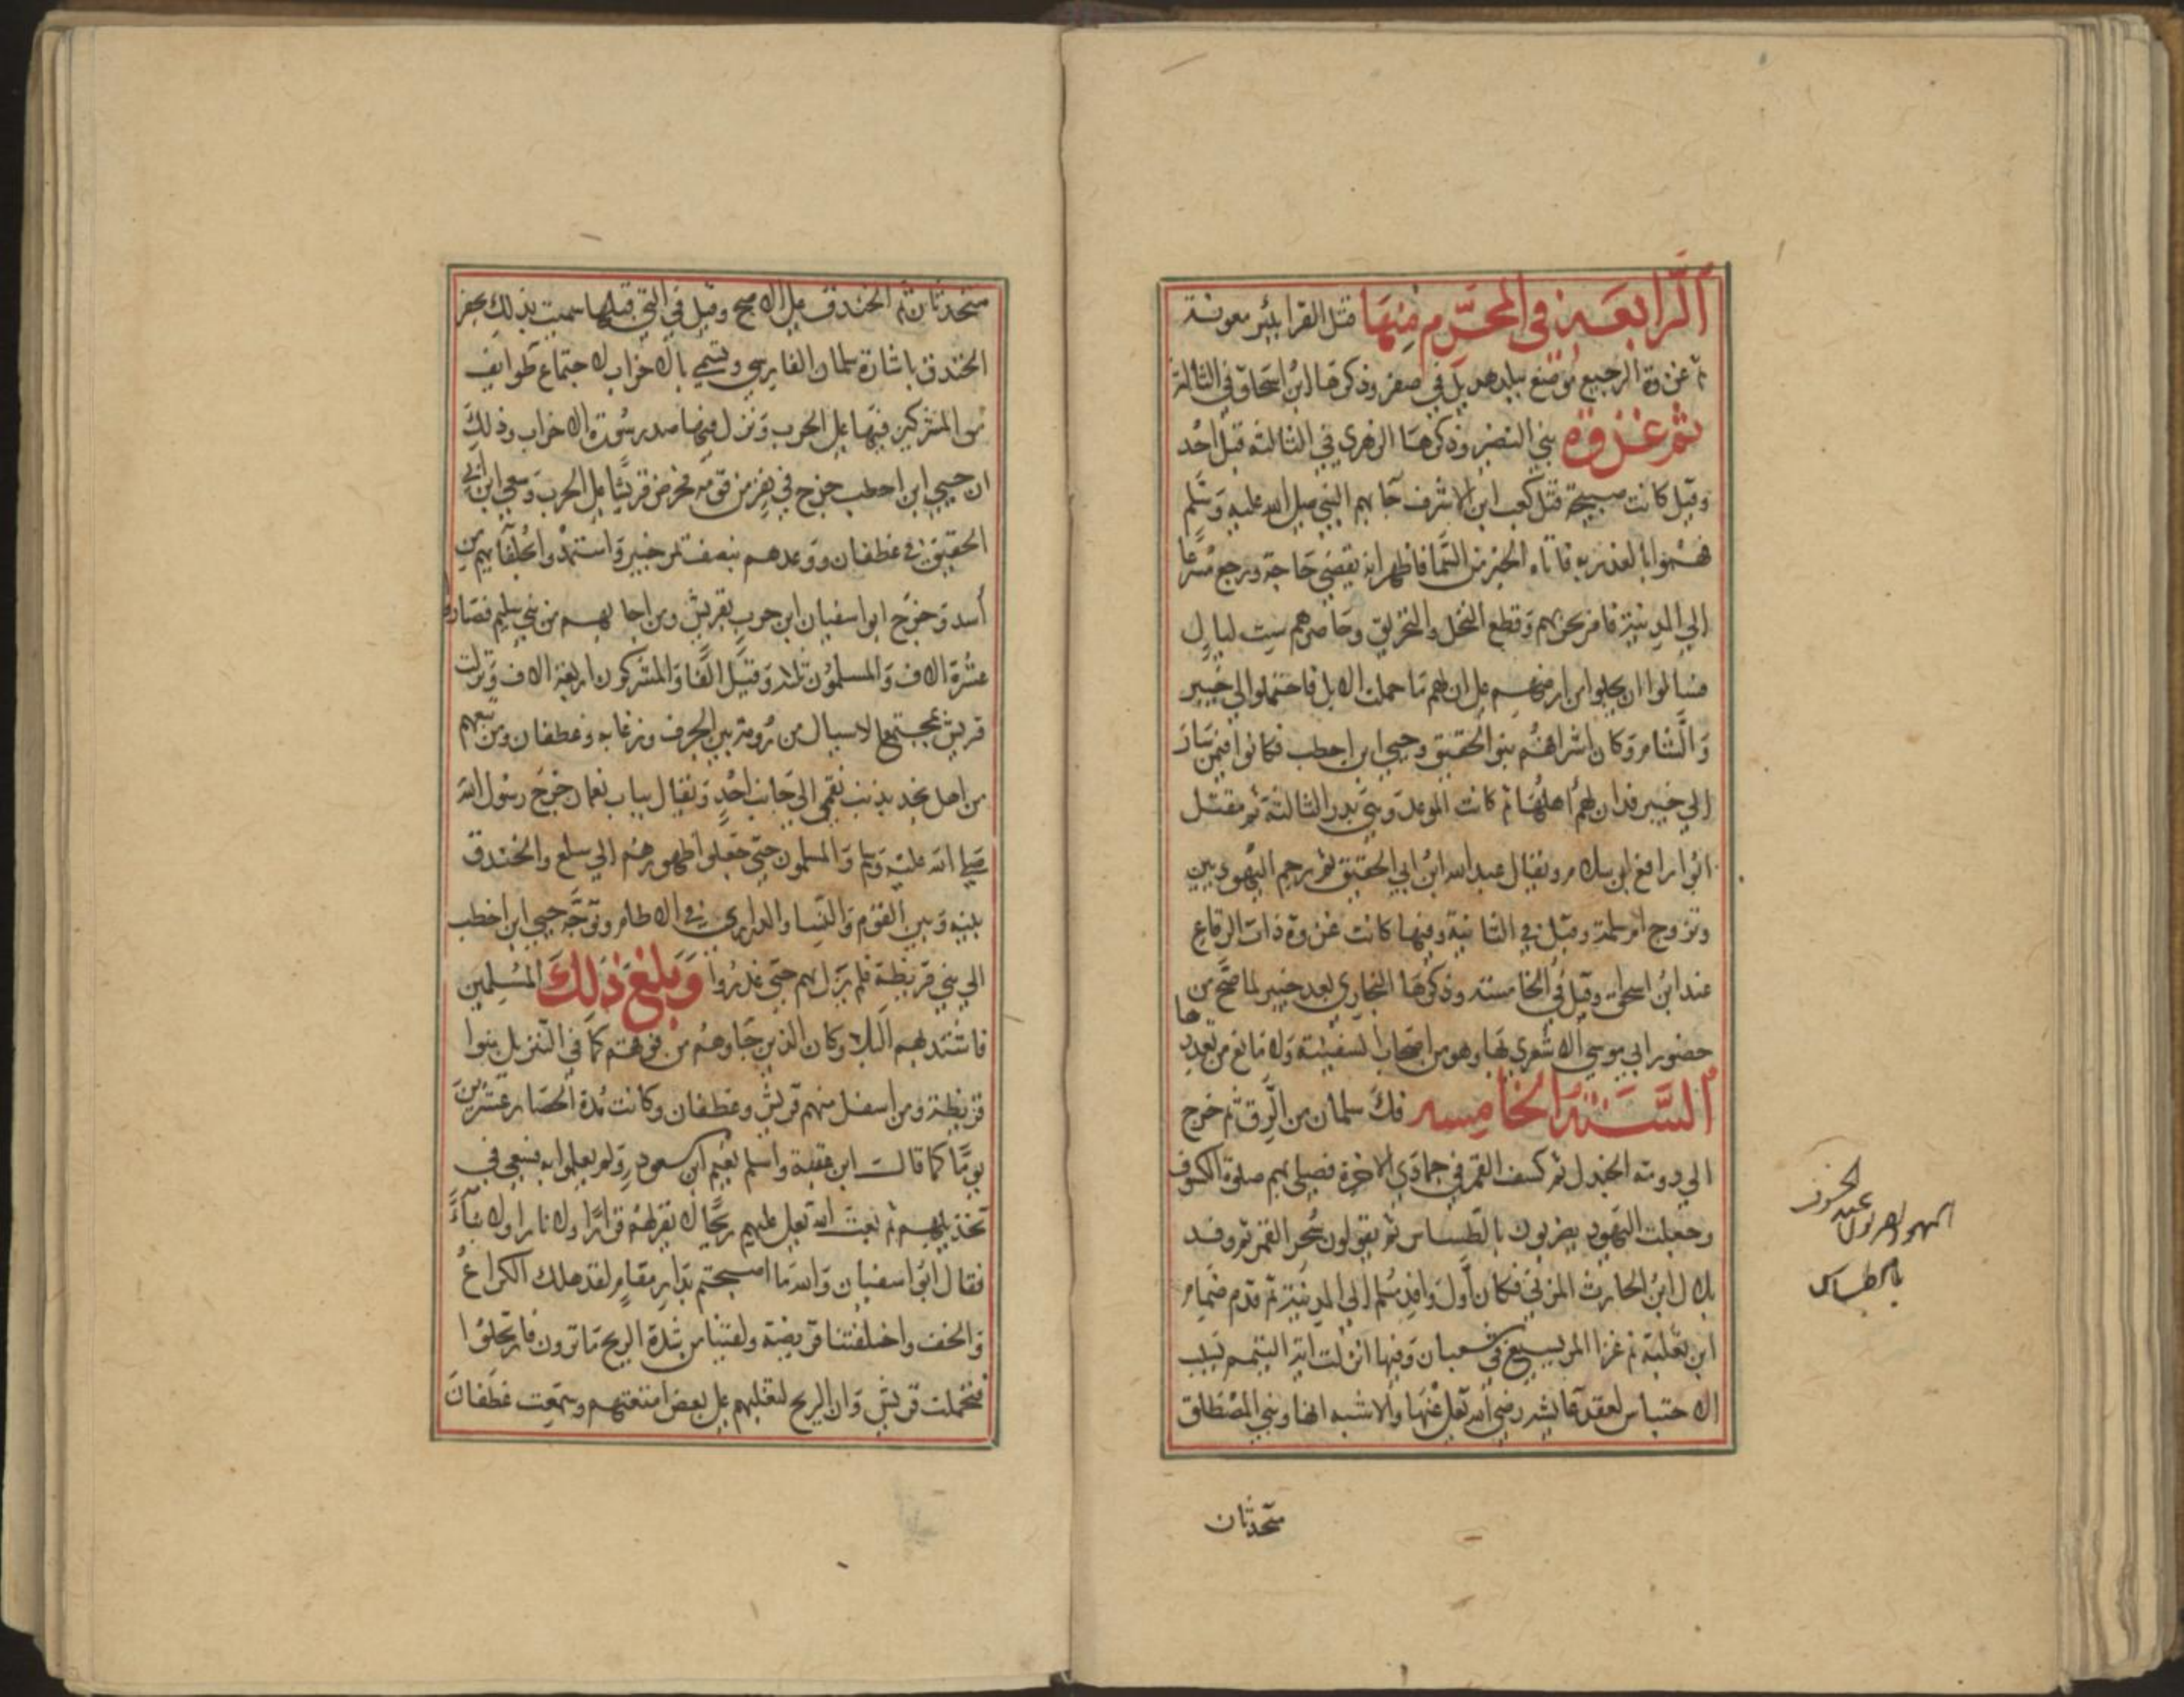 الرابعة في المحرم منها قتل القرا ببئر معونة
ثم غزوة الرجيع موضع ببلد هذيل في صفر وذكرها ابن اسحاق في الثالثة
ثم غزوة بني النضير وذكرها الزهري في الثالثة قبل احد
وقيل كانت صبيحة قتل كعب ابن الاشرف جا بهم النبي صلى الله عليه وسلم
فهموا بالغدر به فاتاه الخبر من السما فاظهر انه يقضي حاجة ورجع مسرعا
الي المدينة فامر بحربهم وقطع النخل والتحريق وحاصرهم ست ليال
فسالوا ان يجلوا من ارضهم على ان لهم ما حملت الابل فاحتملوا الي خيبر
والشام وكان اشرافهم بنو الحقيق وحيي ابن اخطب فكانوا فيمن سار
الي خيبر فدان لهم اهلها ثم كانت الموعد وهي بدر الثالثة ثم مقتل
ابو رافع ابن سلام ويقال عبد الله ابن ابي الحقيق ثم رجم اليهوديين
وتزوج ام سلمة وقيل في الثانية وفيها كانت غزوة ذات الرقاع
عند ابن اسحاق وقيل في الخامسة وذكرها البخاري بعد خيبر لما صح من
حضور ابي موسي الاشعري بها وهو من اصحاب السفينة ولا مانع من تعددها
السنة الخامسة فك سلمان من الرق ثم خرج
الي دومة الجندل ثم كسف القمر في جمادي الاخرة فصلي بهم صلوة الكسوف
وجعلت اليهود يضربون بالطساس ثم يقولون سحر القمر ثم وفد
بلال ابن الحارث المزني فكان اول وافد مسلم الي المدينة ثم قدم ضمام
ابن ثعلبة ثم غزا المريسيع في شعبان وفيها انزلت اية التيمم بسبب
الاحتباس لعقد عايشة رضي الله تعالى عنها والاشبه انها وبني المصطلق
متحدثان
الخسوف
عند
اليهود يضربون
بالطساس
متحدثان ثم الخندق على الاصح وقيل في التي قبلها سميت بذلك بحفر
الخندق باشارة سلمان الفارسي وتسمي بالاحزاب لاجتماع طوايف
من المشركين فيها على الحرب ونزل فيها صدر سورة الاحزاب وذلك
ان حيي ابن احطب خرج في نفر من قومه فحرض قريشا على الحرب وسعي ابن ابي
الحقيق في غطفان ووعدهم بنصف ثمر خيبر واستمدوا بحلفآيهم من
اسد وخرج ابوا سفيان ابن حرب بقريش ومن اجابهم من بني سليم فصاروا
عشرة الاف والمسلمون ثلاثة وقيل الفا والمشركون اربعة الاف ونزلت
قريش بمجتمع الاسيال من رومة بين الجرف وزغابه وغطفان ومن تبعهم
من اهل نجد بذنب نقمي الي جانب احد ويقال بباب نعمان خرج رسول الله
صلي الله عليه وسلم والمسلمون حتي جعلوا ظهورهم الي سلع والخندق
بينه وبين القوم والنسا والذراري في الاطام وتوجه حيي ابن اخطب
الي بني قريظة فلم يزل بهم حتي غدروا وبلغ ذلك المسلمين
فاشتد بهم البلا وكان الذين جاوهم من فوقهم كما في التنزيل بنوا
قريظة ومن اسفل منهم قريش وغطفان وكانت مدة الحصار عشرين
يوما كما قالت ابن عقبة واسلم نعيم ابن مسعود ولم يعلموا به فسعي في
تخذيلهم ثم بعث الله تعالى عليهم ريحا لا تقر لهم قرارا ولا نارا ولا بناءً
فقال ابو اسفيان والله ما اصبحتم بدار مقام لقد هلك الكراع
والخف واخلفتنا قريضة ولقينا من شدة الريح ما ترون فارتحلوا
فتحملت قريش وان الريح لتغلبهم على بعض امتعتهم وسمعت غطفان